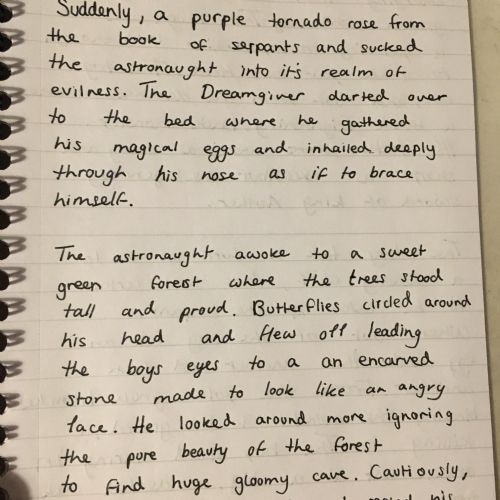 Suddenly, a purple tornado rose from
the book of serpants and sucked
the astronaught into it's realm of
evilness. The Dreamgiver darted over
to the bed where he gathered
his magical eggs and inhailed deeply
through his nose as if to brace
himself.
The astronaught awoke to a sweet
green forest where the trees stood
tall and proud. Butterflies circled around
his head and flew off leading
the boys eyes to a an encarved
stone made to look like an angry
face. He looked around more ignoring
the pure beauty of the forest
to find huge gloomy cave. Cautiously,
his